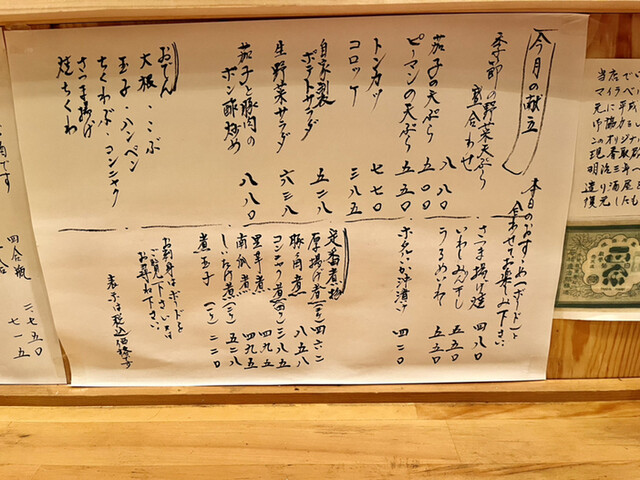 今月の献立
本日のおすすめ(ボード)と
合わせてお楽しみ下さい。
季節の野菜天ぷら
盛合わせ 八八〇
茄子の天ぷら 五〇〇
ピーマンの天ぷら 五五〇
トンカツ 七七〇
コロッケ 三八五
自家製
ポテトサラダ 五二八
生野菜サラダ 六三八
茄子と豚肉の
ポン酢炒め 八八〇
おでん
大根・こぶ
玉子・ハンペン
ちくわぶ・コンニャク
さつま揚げ
焼ちくわ
さつま揚げ焼 四八〇
いわしみりん干し 五五〇
うるめいわし 五五〇
四二〇
定番煮物
厚揚げ煮(二ケ) 四六二
豚角煮 八五八
コンニャク煮 三八五
里芋煮 四九五
南瓜煮 四九五
しいたけ煮 五二八
煮玉子(一ケ) 二二〇
お刺身はボードを
ご覧下さい又は
お尋ね下さい。
表示は税込価格です
当店で
マイラベル
元に平成
げ協力をし
このオリジナ
現存取
明治三年へ
造り酒屋
復元したも
です
四合瓶 二、七五〇
七一五